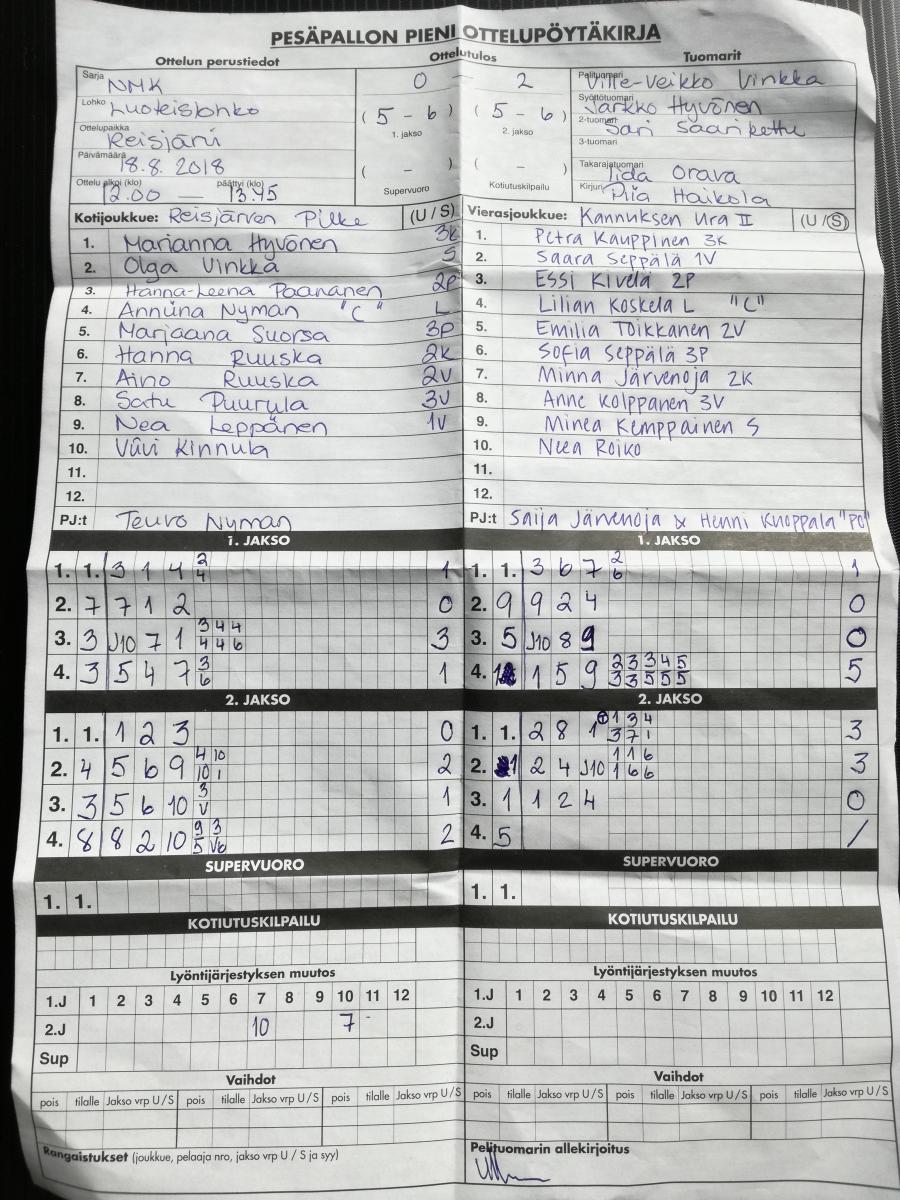 PESÄPALLON PIENI OTTELUPÖYTÄKIRJA
Ottelun perustiedot
Ottelutulos
Tuomarit
Sarja NMK
0 — 2
Pelituomari Ville-Veikko Vinkka
Lohko Luoteislohko
( 5 - 6 ) ( 5 - 6 )
Syöttötuomari Jarkko Hyvönen
1. jakso 2. jakso
2-tuomari Sari Saarikettu
Ottelupaikka Reisjärvi
3-tuomari
Päivämäärä 18.8. 2018
( - ) ( - )
Takarajatuomari Iida Orava
Ottelu alkoi (klo) 12.00 — päättyi (klo) 13.45
Supervuoro Kotiutuskilpailu
Kirjuri Piia Haikola
Kotijoukkue: Reisjärven Pilke (U / S)
1. Marianna Hyvönen 3k
2. Olga Vinkka S
3. Hanna-Leena Paananen 2p
4. Anniina Nyman "C" L
5. Marjaana Suorsa 3p
6. Hanna Ruuska 2k
7. Aino Ruuska 2v
8. Satu Puurula 3v
9. Nea Leppänen 1v
10. Viivi Kinnula
11.
12.
PJ:t Teuvo Nyman
Vierasjoukkue: Kannuksen Ura II (U / S)
1. Petra Kauppinen 3K
2. Saara Seppälä 1V
3. Essi Kivelä 2P
4. Lilian Koskela L "C"
5. Emilia Toikkanen 2V
6. Sofia Seppälä 3P
7. Minna Järvenoja 2K
8. Anne Kolppanen 3V
9. Minea Kemppainen S
10. Neea Roiko
11.
12.
PJ:t Saija Järvenoja & Henni Knoppala "PO"
1. JAKSO
1. 1. 3 1 4 2/4 1
2. 7 7 1 2 0
3. 3 J10 7 1 3/4 4/4 4/6 3
4. 3 5 4 7 3/6 1
2. JAKSO
1. 1. 1 2 3 0
2. 4 5 6 9 4/10 10/1 2
3. 3 5 6 10 3/V 1
4. 8 8 2 10 9/5 3/V6 2
SUPERVUORO
1. 1.
KOTIUTUSKILPAILU
Lyöntijärjestyksen muutos
1.J 1 2 3 4 5 6 7 8 9 10 11 12
2.J 10 7 -
Sup
Vaihdot
pois tilalle Jakso vrp U / S pois tilalle Jakso vrp U / S pois tilalle Jakso vrp U / S
Rangaistukset (joukkue, pelaaja nro, jakso vrp U / S ja syy)
1. JAKSO
1. 1. 3 6 7 2/6 1
2. 9 9 2 4 0
3. 5 J10 8 9 0
4. 1 5 9 2/3 3/3 3/5 4/5 5/5 5
2. JAKSO
1. 1. 2 8 1 1/3 3/7 4/1 3
2. 1 2 4 J10 1/1 1/6 6/6 3
3. 1 1 2 4 0
4. 5 /
SUPERVUORO
1. 1.
KOTIUTUSKILPAILU
Lyöntijärjestyksen muutos
1.J 1 2 3 4 5 6 7 8 9 10 11 12
2.J
Sup
Vaihdot
pois tilalle Jakso vrp U / S pois tilalle Jakso vrp U / S pois tilalle Jakso vrp U / S
Pelituomarin allekirjoitus